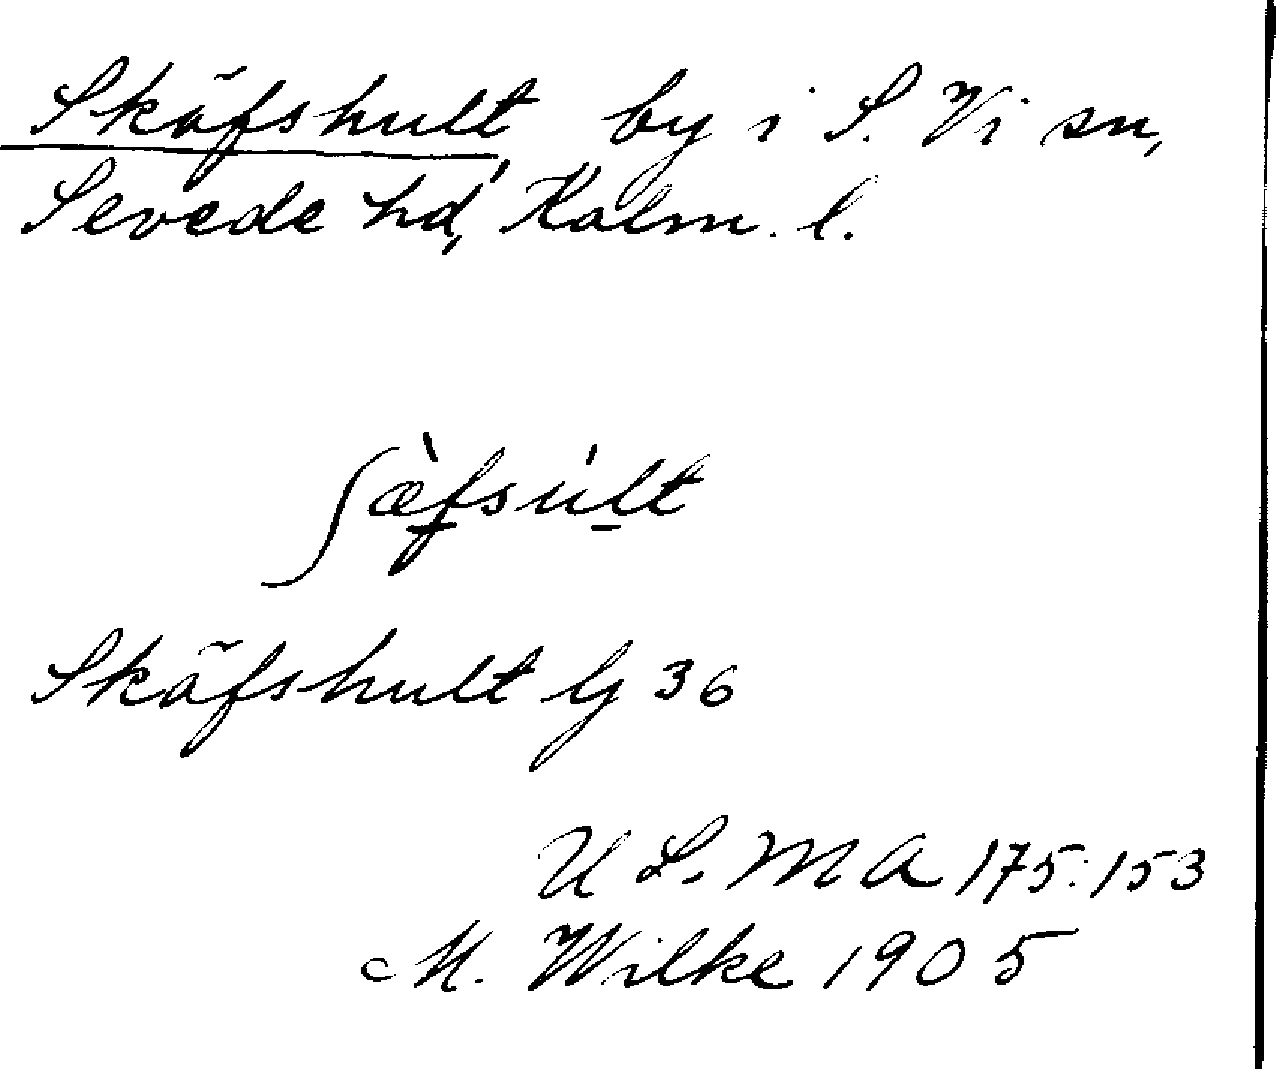 Skäfshult, by i S. Vi sn,
Sevede hd, Kalm. l.
ʃæ̀fsúlt
Skäfshult G 36
U L. M A 175:153
M. Wilke 1905